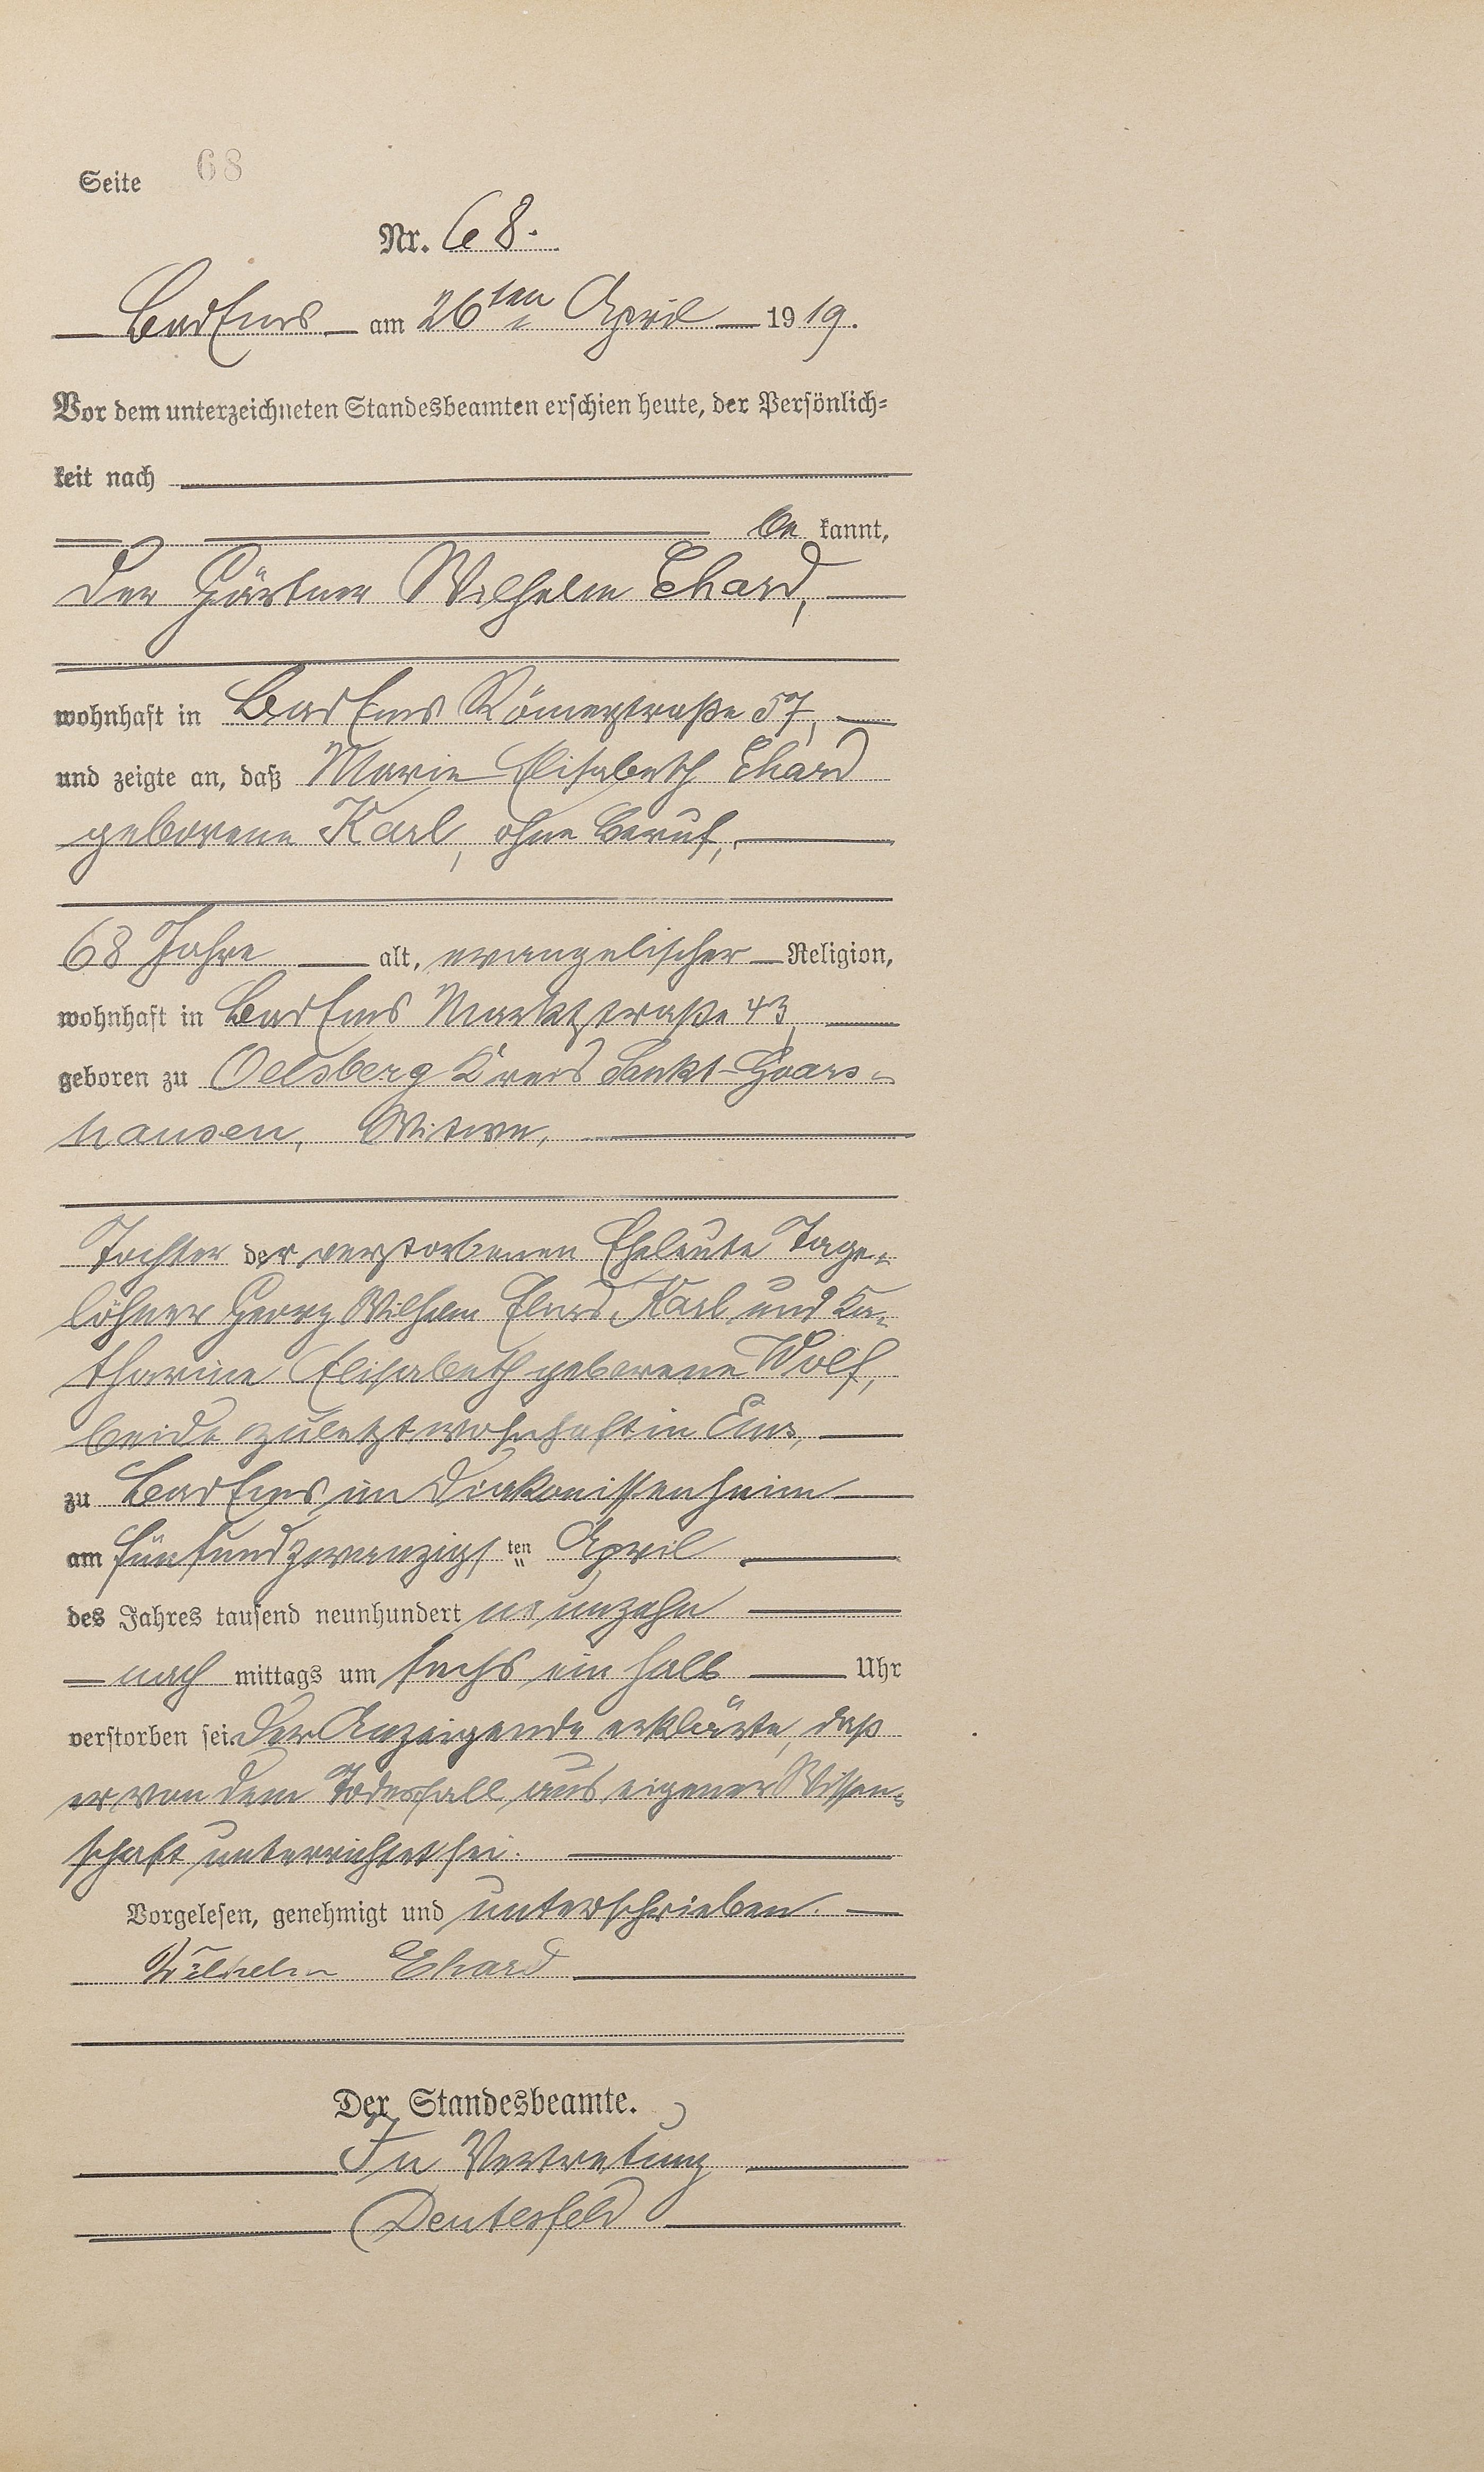 Seite 68
Nr. 68.
Bad Ems am 26ten April 1919.
Vor dem unterzeichneten Standesbeamten erschien heute, der Persönlich-
keit nach
be kannt,
der Gärtner Wilhelm Ehard,
wohnhaft in Bad Ems Römerstraße 57,
und zeigte an, daß Marie Elisabeth Ehard
geborene Karl, ohne Beruf,
68 Jahre alt, evangelischer Religion,
wohnhaft in Bad Ems Marktstraße 43,
geboren zu Oelsberg Kreis Sankt-Goars-
hausen, Witwe,
Tochter der verstorbenen Eheleute Tage-
löhner Georg Wilhelm Karl und Ka-
tharine Elisabeth geborene Wolf,
beide zuletzt wohnhaft in Ems,
zu Bad Ems im Diakonissenheim
am fünfundzwanzigsten April
des Jahres tausend neunhundert neunzehn
nach mittags um sechs ein halb Uhr
verstorben sei. Der Anzeigende erklärte, daß
er von dem Todesfall aus eigener Wissen-
schaft unterrichtet sei.
Vorgelesen, genehmigt und unterschrieben.
Wilhelm Ehard
Der Standesbeamte.
In Vertretung
Deutesfeld